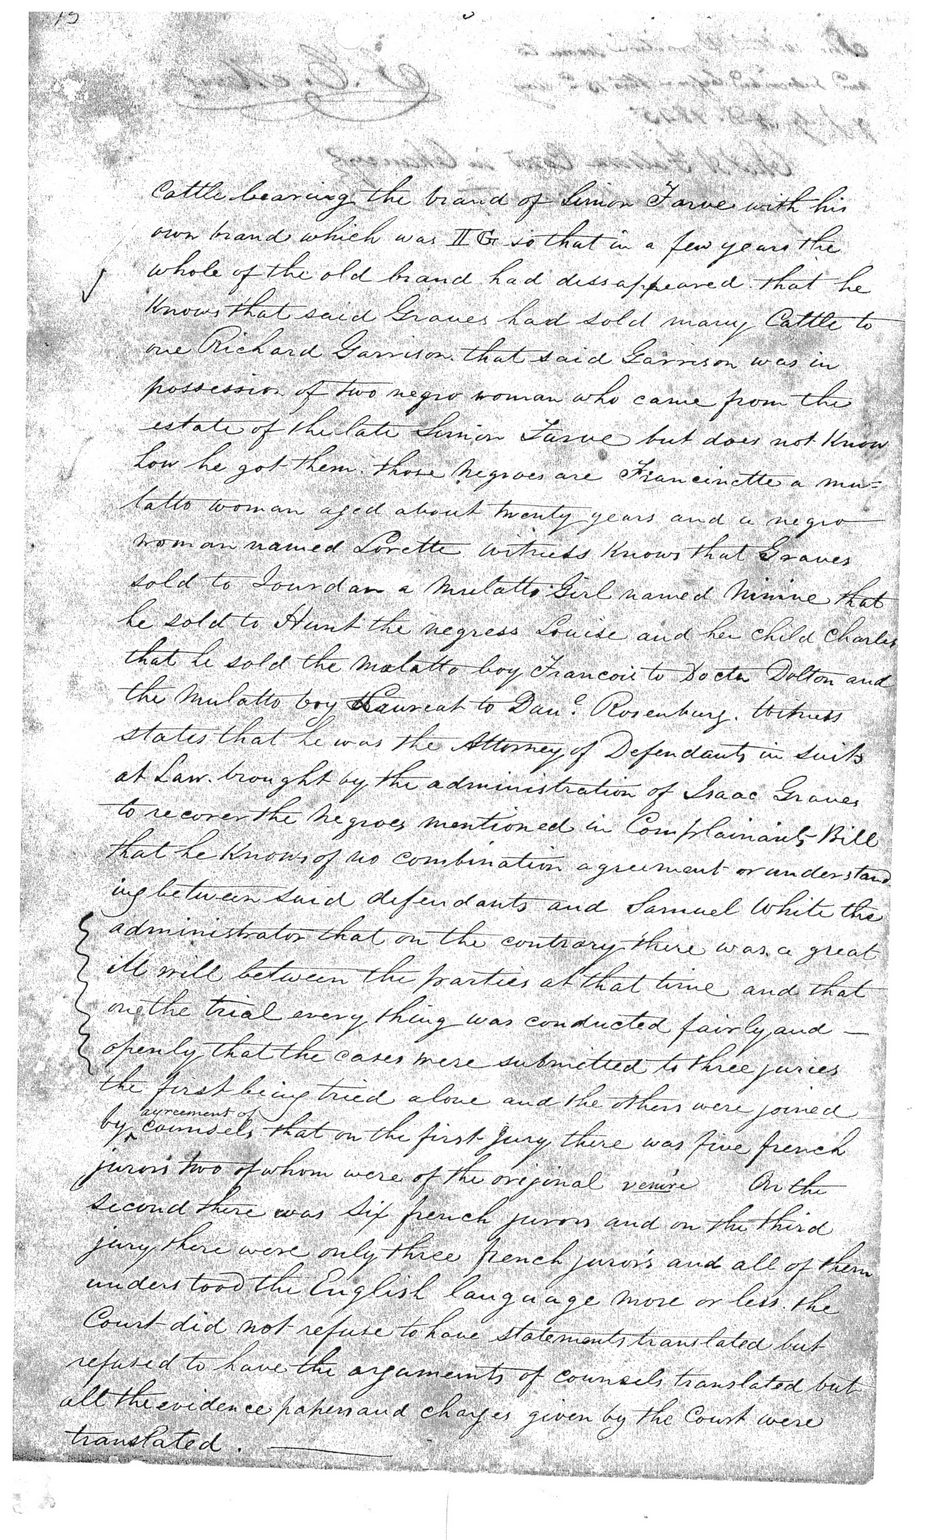 Cattle bearing the brand of Simon Farve with his
own brand which was IIG so that in a few years the
whole of the old brand had dissappeared that he
Knows that said Graves had sold many Cattle to
one Richard Garrison. that said Garrison was in
possession of two negro woman who came from the
estate of the late Simon Farve but does not Know
how he got them. those Negroes are Francinette a mu=
latto woman aged about twenty years and a negro
woman named Lorette witness Knows that Graves
sold to Jourdan a Mulatto Girl named Ninine that
he sold to Hunt the negress Louise and her child Charles
that he sold the malatto boy Francois to Docter Dolton and
the Mulatto boy Laureat to Danl. Rosenburg. Witness
states that he was the Attorney of Defendants in suits
at Law. brought by the administration of Isaac Graves
to recover the Negroes mentioned in Complainants Bill
that he Knows of no combination agreement or understand
ing between said defendants and Samuel White the
administrator that on the contrary there was a great
ill will between the parties at that time and that
on the trial every thing was conducted fairly and —
openly that the cases were submitted to three juries
the first being tried alone and the others were joined
by agreement of counsels that on the first Jury there was five french
jurors two of whom were of the original venire On the
second there was six french jurors and on the third
jury there were only three french jurors and all of them
understood the English language more or less. the
Court did not refuse to have statements translated but
refused to have the arguments of counsels translated but
all the evidence papers and charges given by the Court were
translated.